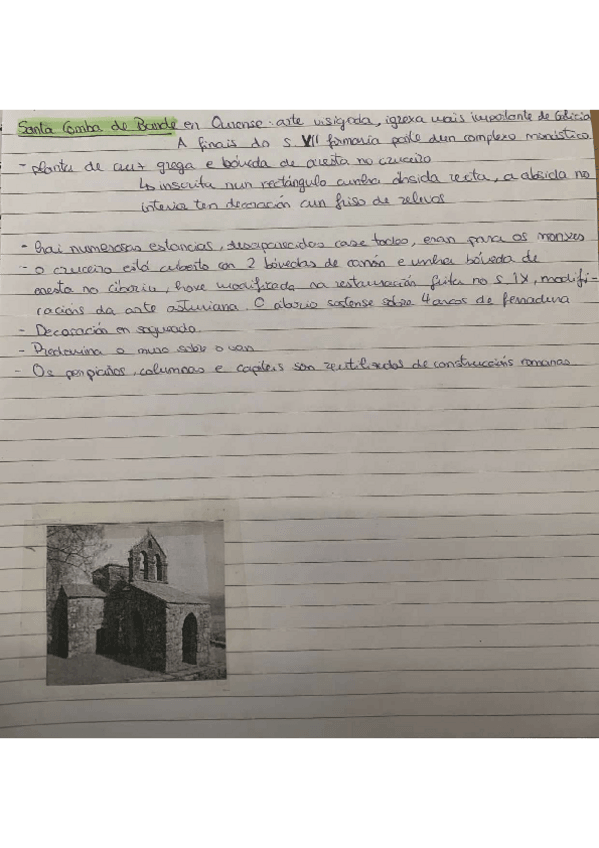 Santa Comba de Bande en Ourense: arte visigoda, igrexa máis importante de Galicia
A finais do s. VII formaría parte dun complexo monástico
- planta de cruz grega e bóveda de aresta no cruceiro
↳ inscrita nun rectángulo cunha ábsida recta, a absida no
interior ten decoración cun friso de relevos
- hai numerosas estancias, desaparecidas case todas, eran para os monxes
- o cruceiro está cuberto con 2 bóvedas de canón e unha bóveda de
aresta no ciborio, houve modificada na restauración feita no s. IX, modifi-
cacións da arte asturiana. O aborio sostense sobre 4 arcos de ferradura
- Decoración en sogueado.
- Predomina o muro sobre o van
- Os perpiaños, columnas e capiteis son reutilizados de construccións romanas.